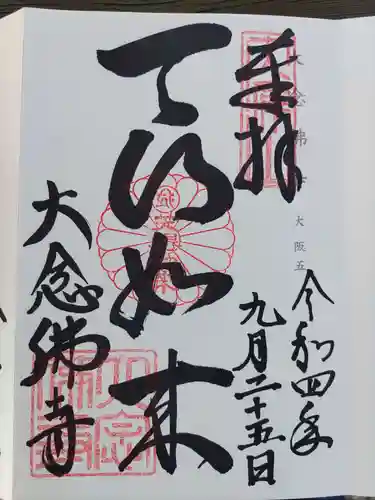 奉拝
大念佛寺
大阪五
令和四年
九月二十五日
天得如来
大念佛寺